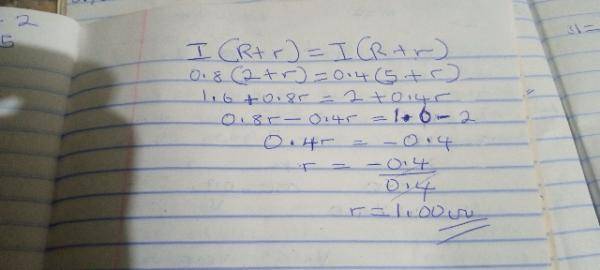 - 2
5
I (R+r) = I (R + r)
0.8(2+r) = 0.4(5 + r)
1.6 + 0.8r = 2 + 0.4r
0.8r - 0.4r = 1.6 - 2
0.4r = - 0.4
r = - 0.4
0.4
r = 1.00